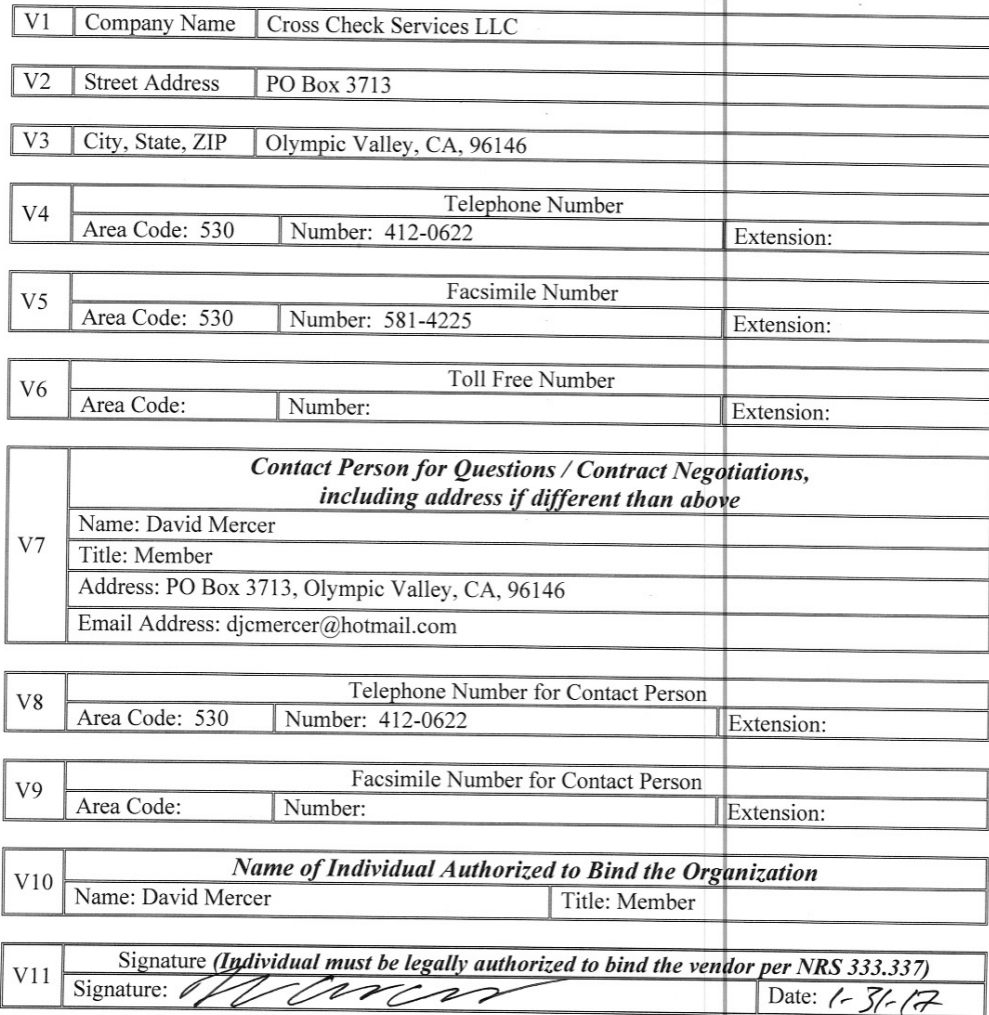 V1 Company Name Cross Check Services LLC
V2 Street Address PO Box 3713
V3 City, State, ZIP Olympic Valley, CA, 96146
V4 Telephone Number
Area Code: 530 Number: 412-0622 Extension:
V5 Facsimile Number
Area Code: 530 Number: 581-4225 Extension:
V6 Toll Free Number
Area Code: Number: Extension:
Contact Person for Questions / Contract Negotiations,
including address if different than above
V7 Name: David Mercer
Title: Member
Address: PO Box 3713, Olympic Valley, CA, 96146
Email Address: djcmercer@hotmail.com
V8 Telephone Number for Contact Person
Area Code: 530 Number: 412-0622 Extension:
V9 Facsimile Number for Contact Person
Area Code: Number: Extension:
V10 Name of Individual Authorized to Bind the Organization
Name: David Mercer Title: Member
V11 Signature (Individual must be legally authorized to bind the vendor per NRS 333.337)
Signature: Date: 1-31-17